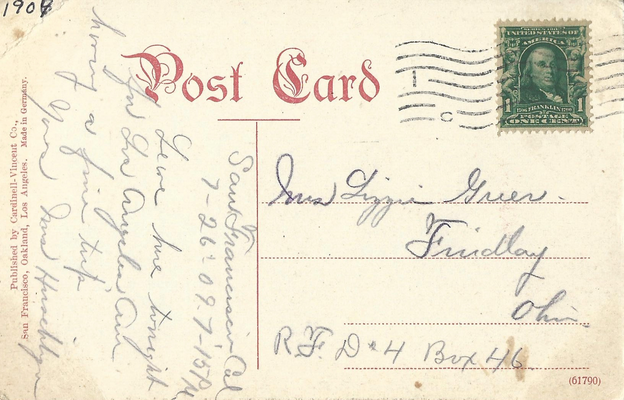 1909
Post Card
SERIES 1902
UNITED STATES OF AMERICA
1706 FRANKLIN 1790
1 1
POSTAGE
ONE CENT
C
San Francisco Cal
7-26-09. 7-15 P
Leave here tonight
for Los Angeles Am
having a fine trip
Yours Mrs
Mrs Lizzie Greer.
Findlay
Ohio.
R.F.D #4 Box 46
Published by Cardinell-Vincent Co.,
San Francisco, Oakland, Los Angeles. Made in Germany.
(61790)